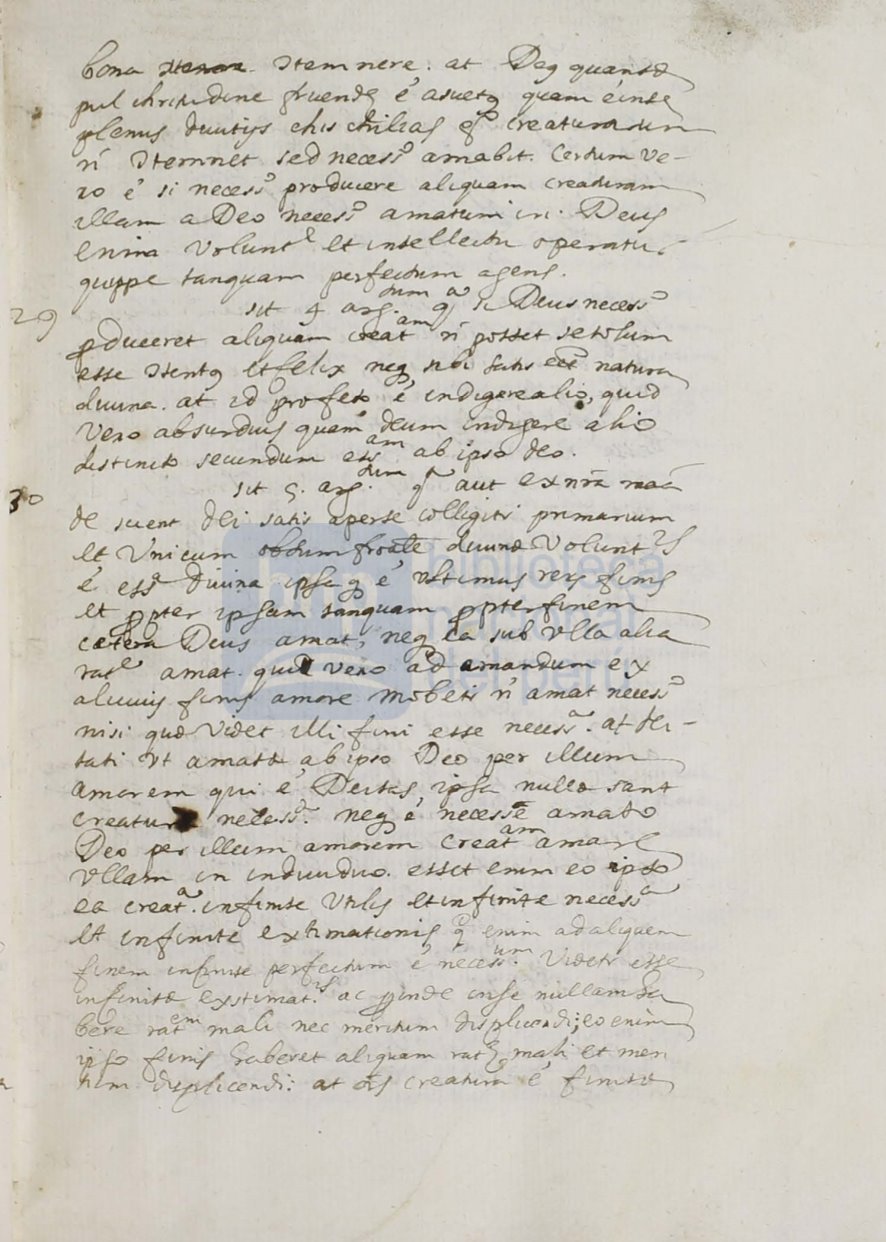 bona stemnere. at Deꝰ quantæ
pulchritudine
plenus diuitijs creaturarum
ñ stemnet sed necess.º amabit. Certum ve-
ro é si necess.º producere aliquam creaturam
illam a Deo necess.º amatum iri. Deus
enim volunt.e et intellectu operatur
quippe tanquam perfectum agens.
29 sit 4 arg.tum si Deus necess.º
produceret aliquam creat.am ñ posset se solum
esse et felix neq sibi satis natura
diuina. at id profeto é indigere alio, quid
vero absurdius quam deum indigere alio
distincto secundum ess.am ab ipso deo.
30 sit 5. arg.tum aut ex nr̃a
de scient dei satis aperte colligitr primarium
et Vnicum diuinæ Volunt.is
é ess.ª Diuina ipsaq é vltimus finis
et propter ipsam tanquam propter finem
cætera Deus amat, neq ea sub vlla alia
rat.e amat. qui vero ad amandum ex
alicuius finis amore mobetr ñ amat necess.º
nisi quæ Videt illi fini esse necess.ª. at Dei-
tati vt amatæ ab ipso Deo per illum
amorem qui é Deitas ipsa nullæ sant
creaturæ necess.ª. neq é necesse amato
Deo per illum amorem creat.am amare
vllam in indiuiduo. esset enim eo ipso
ea creat.ª. infinite Vtilis et infinite necess.ª
et infinite extimationis enim ad aliquem
finem infinite perfectum é necess.um. Videtr esse
infinitæ exstimat.is ac proinde in se nullam ha
bere rat.em mali nec meritum displicendi; eo enim
ipso finis haberet aliquam mali et meri
tum displicendi: at creatura é finitæ